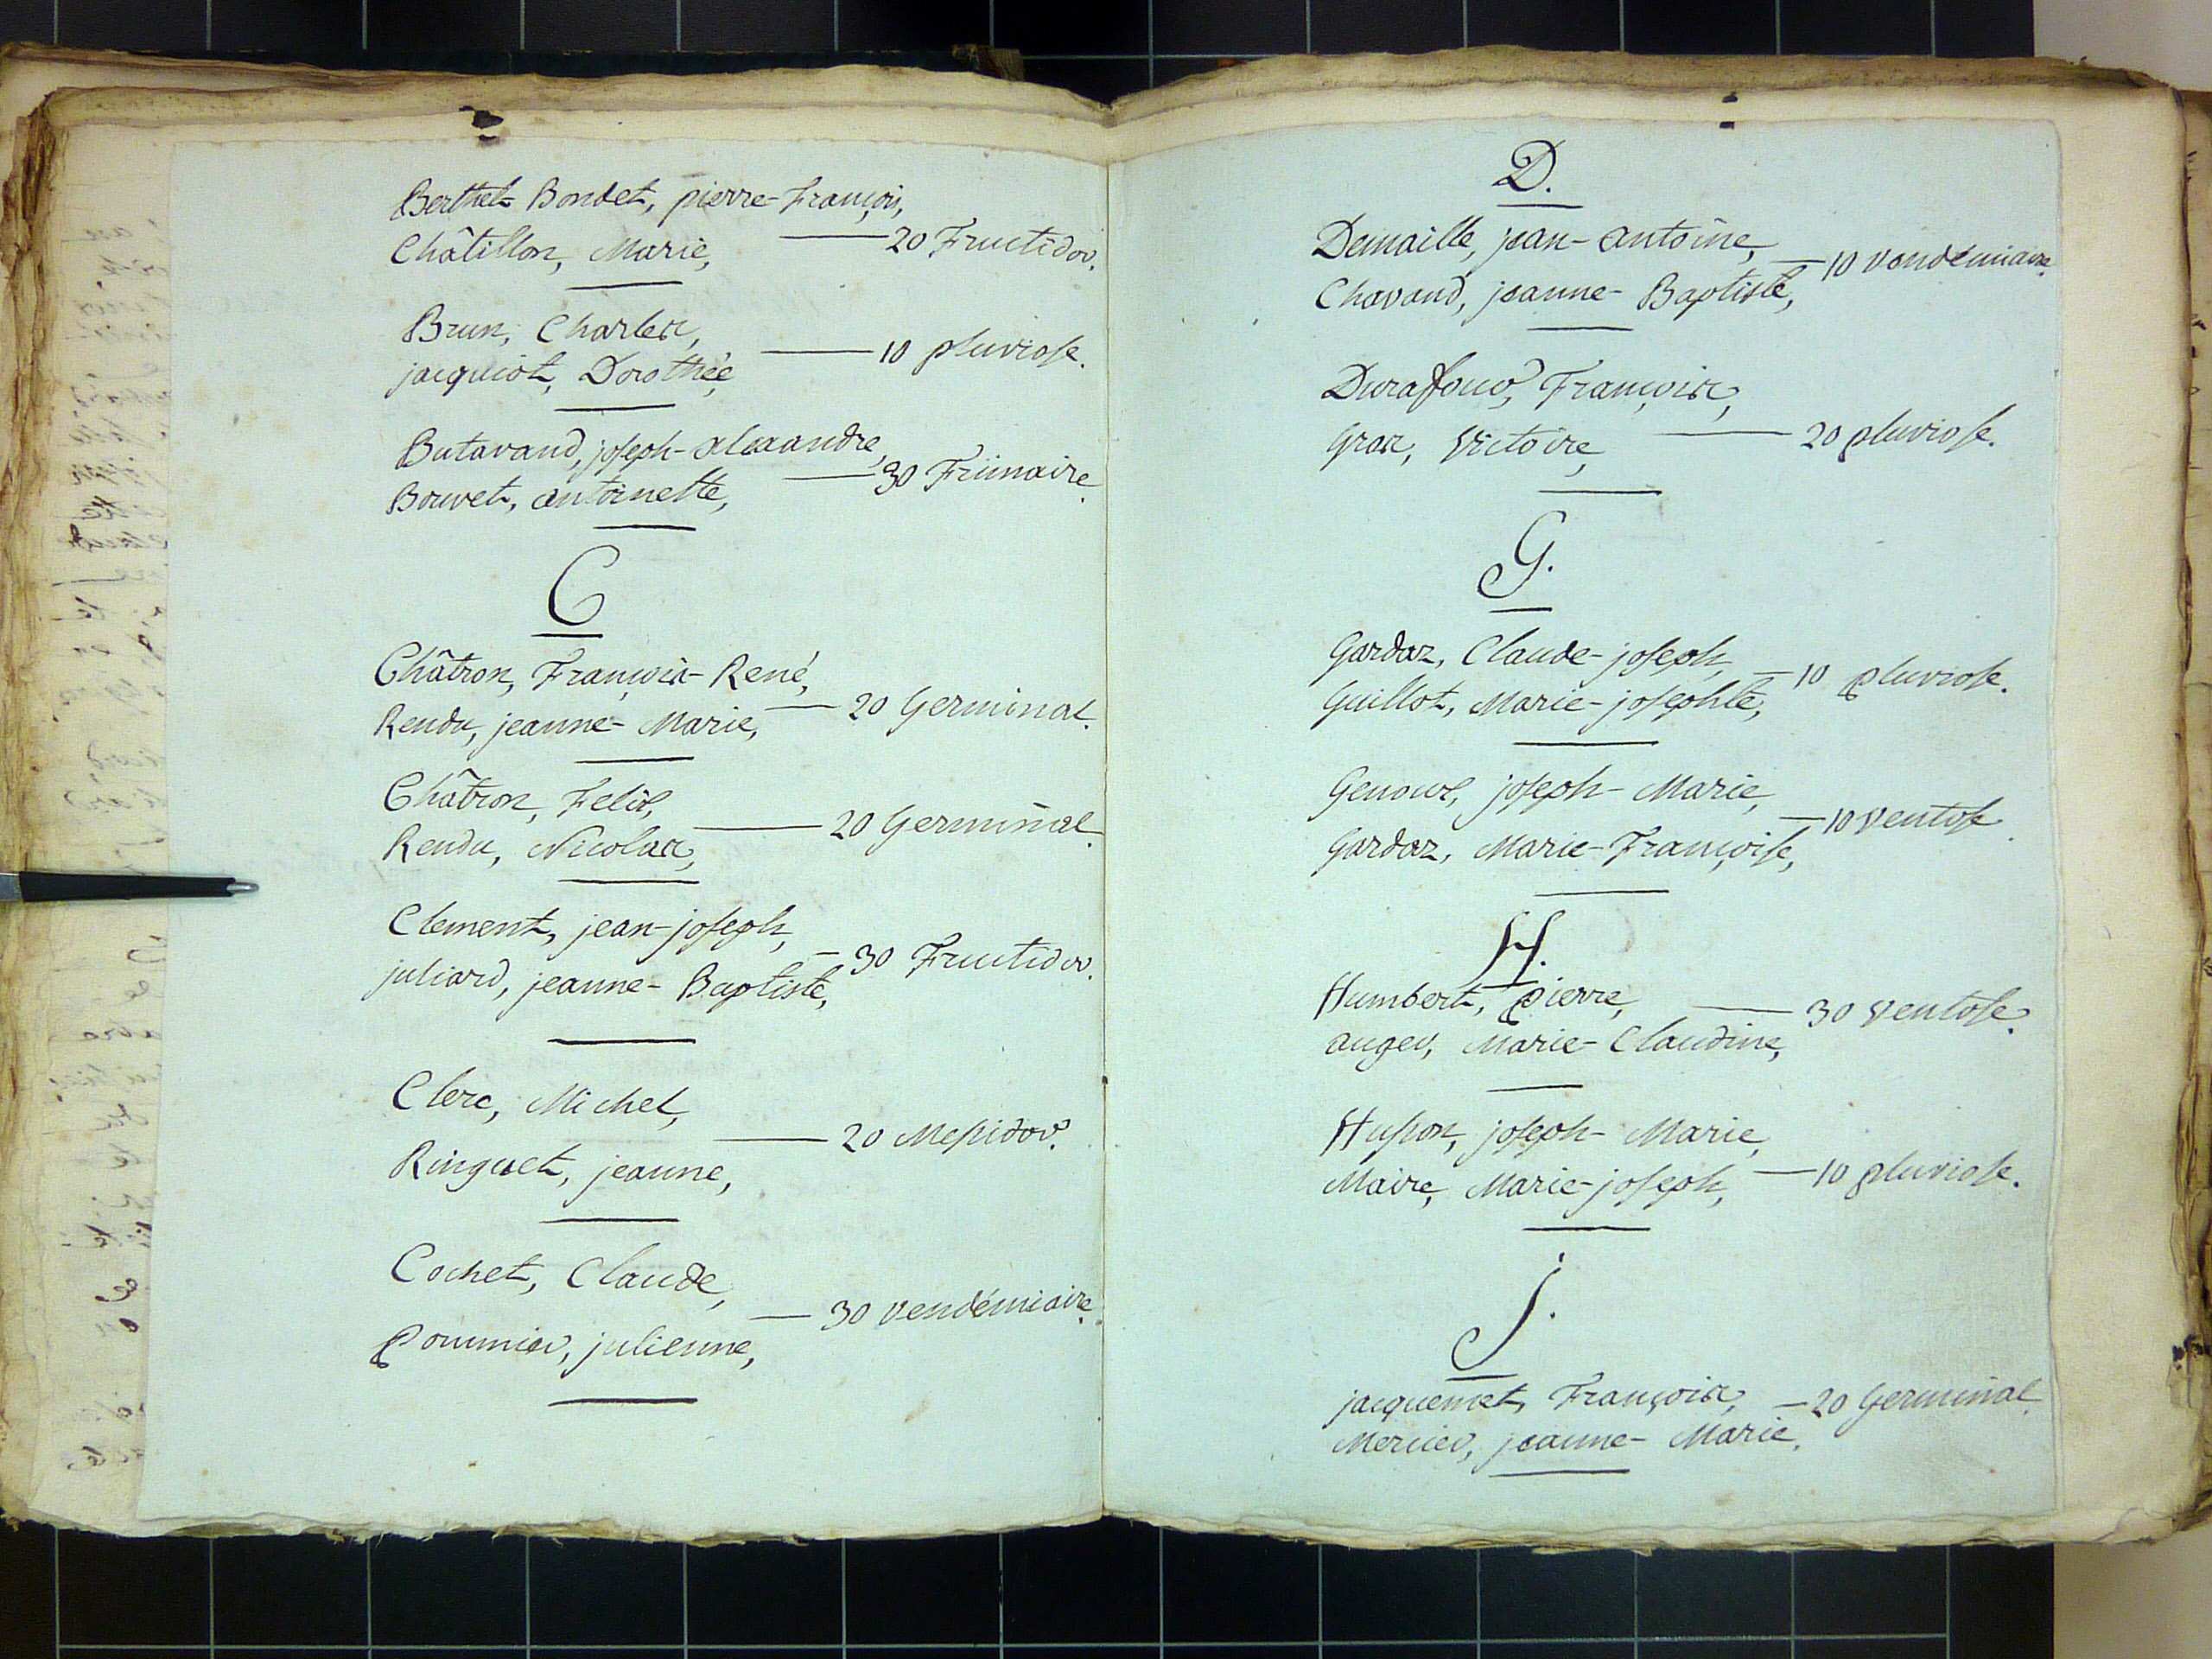 Berthet-Bondet, pierre-François,
Châtillon, Marie, — 20 Fructidor.
Brun, Charles,
jacquiot, Dorothée, — 10 pluviose.
Butavand, joseph-alexandre,
Bouvet, antoinette, — 30 Frimaire.
C
Châtron, François-René,
Rendu, jeanne-Marie, — 20 Germinal.
Châtron, Felix,
Rendu, Nicolas, — 20 Germinal.
Clement, jean-joseph,
juliard, jeanne-Baptiste, — 30 Fructidor.
Clerc, Michel,
Ringuet, jeanne, — 20 Messidor.
Cochet, Claude,
Pommier, julienne, — 30 vendémiaire.
D.
Demaille, jean-antoine,
Chavand, jeanne-Baptiste, — 10 vendémiaire.
Durafour, François,
Gras, Victoire, — 20 pluviose.
G.
Gardaz, Claude-joseph,
Guillot, Marie-josephte, — 10 pluviose.
Genoux, joseph-Marie,
Gardaz, Marie-Françoise, — 10 Ventose.
H.
Humbert, Pierre,
auger, Marie-Claudine, — 30 Ventose.
Husson, joseph-Marie,
Maire, Marie-joseph, — 10 pluviose.
j.
jacquemet, François,
Mercier, jeanne-Marie. — 20 Germinal.